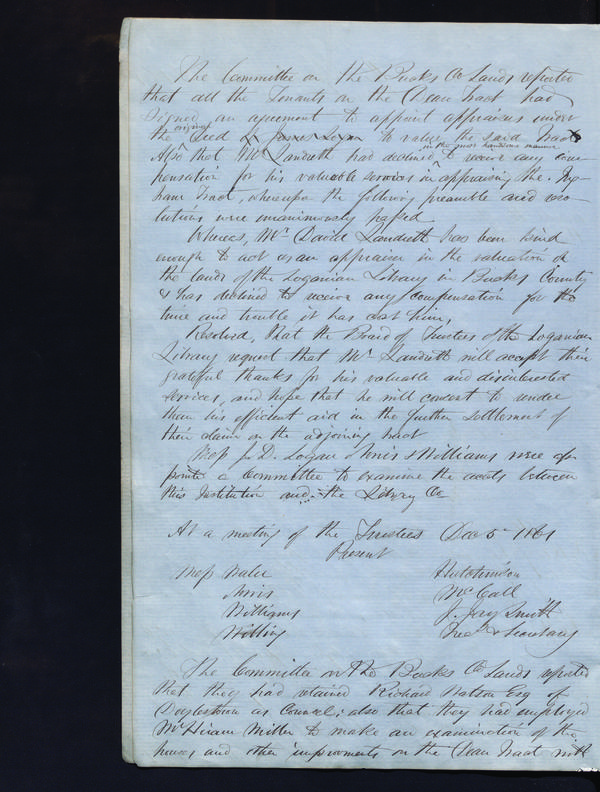 The Committee on the Bucks Co Lands reported
that all the Tenants on the Dean Tract had
signed an agreement to appoint appraisers under
the original Deed to value the said Tract
in the most handsome manner
Also that Mr Landreth had declined to receive any com
pensation for his valuable services in appraising the Ing
ham Tract, whereupon the following preamble and reso
lutions were unanimously passed
Whereas, Mr David Landreth has been kind
enough to act as an appraiser in the valuation of
the lands of the Loganian Library in Bucks County
& has declined to receive any compensation for the
time and trouble it has cost him,
Resolved, That the Board of Trustees of the Loganian
Library request that Mr Landreth will accept their
grateful thanks for his valuable and disinterested
services, and hope that he will consent to render
them his efficient aid in the further settlement of
their claim on the adjoining tract
Mess J. D. Logan Norris & Williams were ap
pointed a Committee to examine the accts between
this Institution and the Library Co
At a meeting of the Trustees Dec 5th 1861
Present
Mess Hutchinson
Norris McCall
Williams J. Jay Smith
Willing Treasr & Secretary
The Committee on the Bucks Co Lands reported
that they had retained Richard Watson Esq of
Doylestown as Council; also that they had employed
Mr Hiram Miller to make an examination of the
houses and other improvments on the Dean Tract with